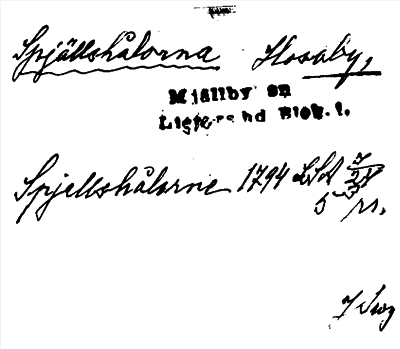 Spjällshålorna Hosaby,
Mjällby sn
Listers hd Blek. l.
Spjellshålorne 1794 LSA
5 rs.